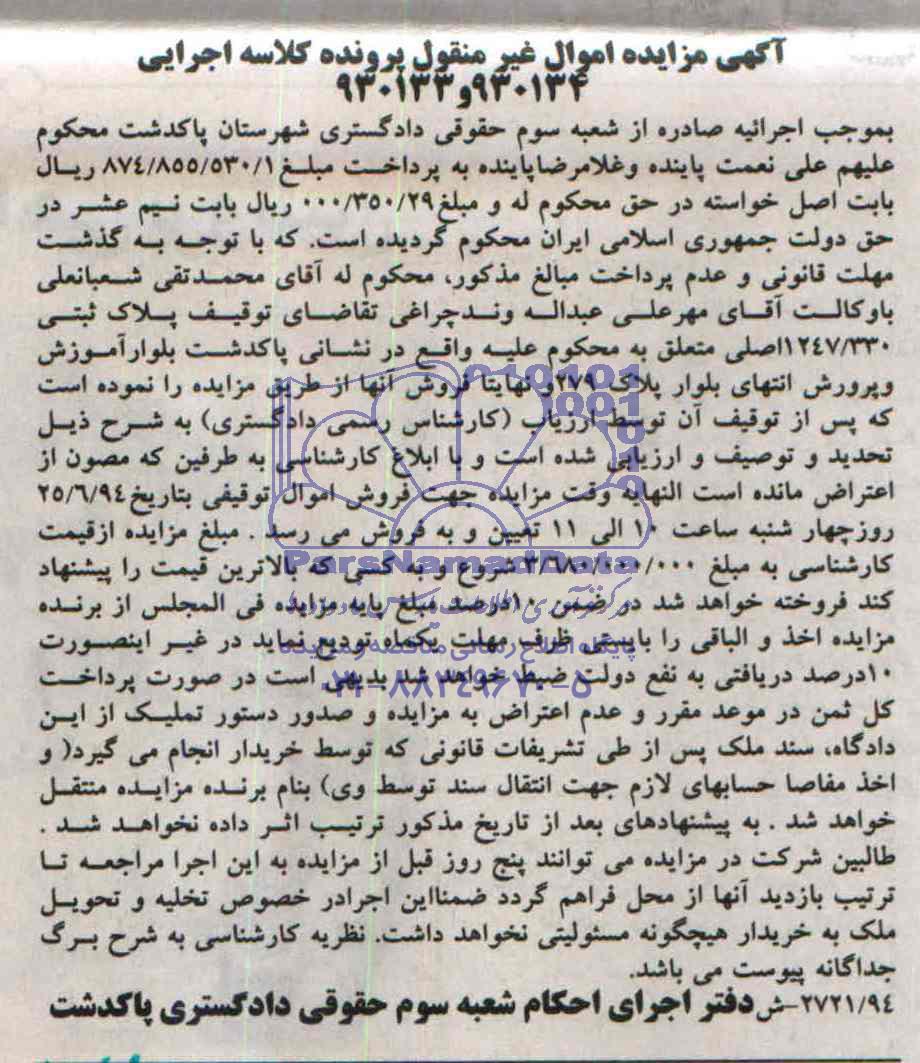 آگهی مزایده اموال غیر منقول پرونده کلاسه اجرایی
۹۳۰۱۳۴و۹۳۰۱۳۳
بموجب اجرائیه صادره از شعبه سوم حقوقی دادگستری شهرستان پاکدشت محکوم
علیهم علی نعمت پاینده وغلامرضاپاینده به پرداخت مبلغ۸۷٤/۸٥٥/٥۳۰/۱ ریال
بابت اصل خواسته در حق محکوم له و مبلغ۰۰۰/۳٥۰/۲۹ ریال بابت نیم عشر در
حق دولت جمهوری اسلامی ایران محکوم گردیده است. که با توجه به گذشت
مهلت قانونی و عدم پرداخت مبالغ مذکور، محکوم له آقای محمدتقی شعبانعلی
باوکالت آقای مهرعلی عبداله وندچراغی تقاضای توقیف پلاک ثبتی
۱۲٤۷/۳۳۰اصلی متعلق به محکوم علیه واقع در نشانی پاکدشت بلوارآموزش
وپرورش انتهای بلوار پلاک ۲۷۹و نهایتا فروش آنها از طریق مزایده را نموده است
که پس از توقیف آن توسط ارزیاب (کارشناس رسمی دادگستری) به شرح ذیل
تحدید و توصیف و ارزیابی شده است و با ابلاغ کارشناسی به طرفین که مصون از
اعتراض مانده است النهایه وقت مزایده جهت فروش اموال توقیفی بتاریخ۲٥/٦/۹٤
روزچهار شنبه ساعت ۱۰ الی ۱۱ تعیین و به فروش می رسد . مبلغ مزایده ازقیمت
کارشناسی به مبلغ ۳/٦۸۰/۰۰۰/۰۰۰ شروع و به کسی که بالاترین قیمت را پیشنهاد
کند فروخته خواهد شد در ضمن ۱۰درصد مبلغ پایه مزایده فی المجلس از برنده
مزایده اخذ و الباقی را بایستی ظرف مهلت یکماه تودیع نماید در غیر اینصورت
۱۰درصد دریافتی به نفع دولت ضبط خواهد شد بدیهی است در صورت پرداخت
کل ثمن در موعد مقرر و عدم اعتراض به مزایده و صدور دستور تملیک از این
دادگاه، سند ملک پس از طی تشریفات قانونی که توسط خریدار انجام می گیرد( و
اخذ مفاصا حسابهای لازم جهت انتقال سند توسط وی) بنام برنده مزایده منتقل
خواهد شد . به پیشنهادهای بعد از تاریخ مذکور ترتیب اثر داده نخواهد شد .
طالبین شرکت در مزایده می توانند پنج روز قبل از مزایده به این اجرا مراجعه تا
ترتیب بازدید آنها از محل فراهم گردد ضمنااین اجرادر خصوص تخلیه و تحویل
ملک به خریدار هیچگونه مسئولیتی نخواهد داشت. نظریه کارشناسی به شرح برگ
جداگانه پیوست می باشد.
۲۷۲۱/۹٤-ش دفتر اجرای احکام شعبه سوم حقوقی دادگستری پاکدشت
ParsNamadData
پایگاه اطلاع رسانی مناقصه و مزایده
۰۲۱-۸۸۳۴۹۶۷۰-۵